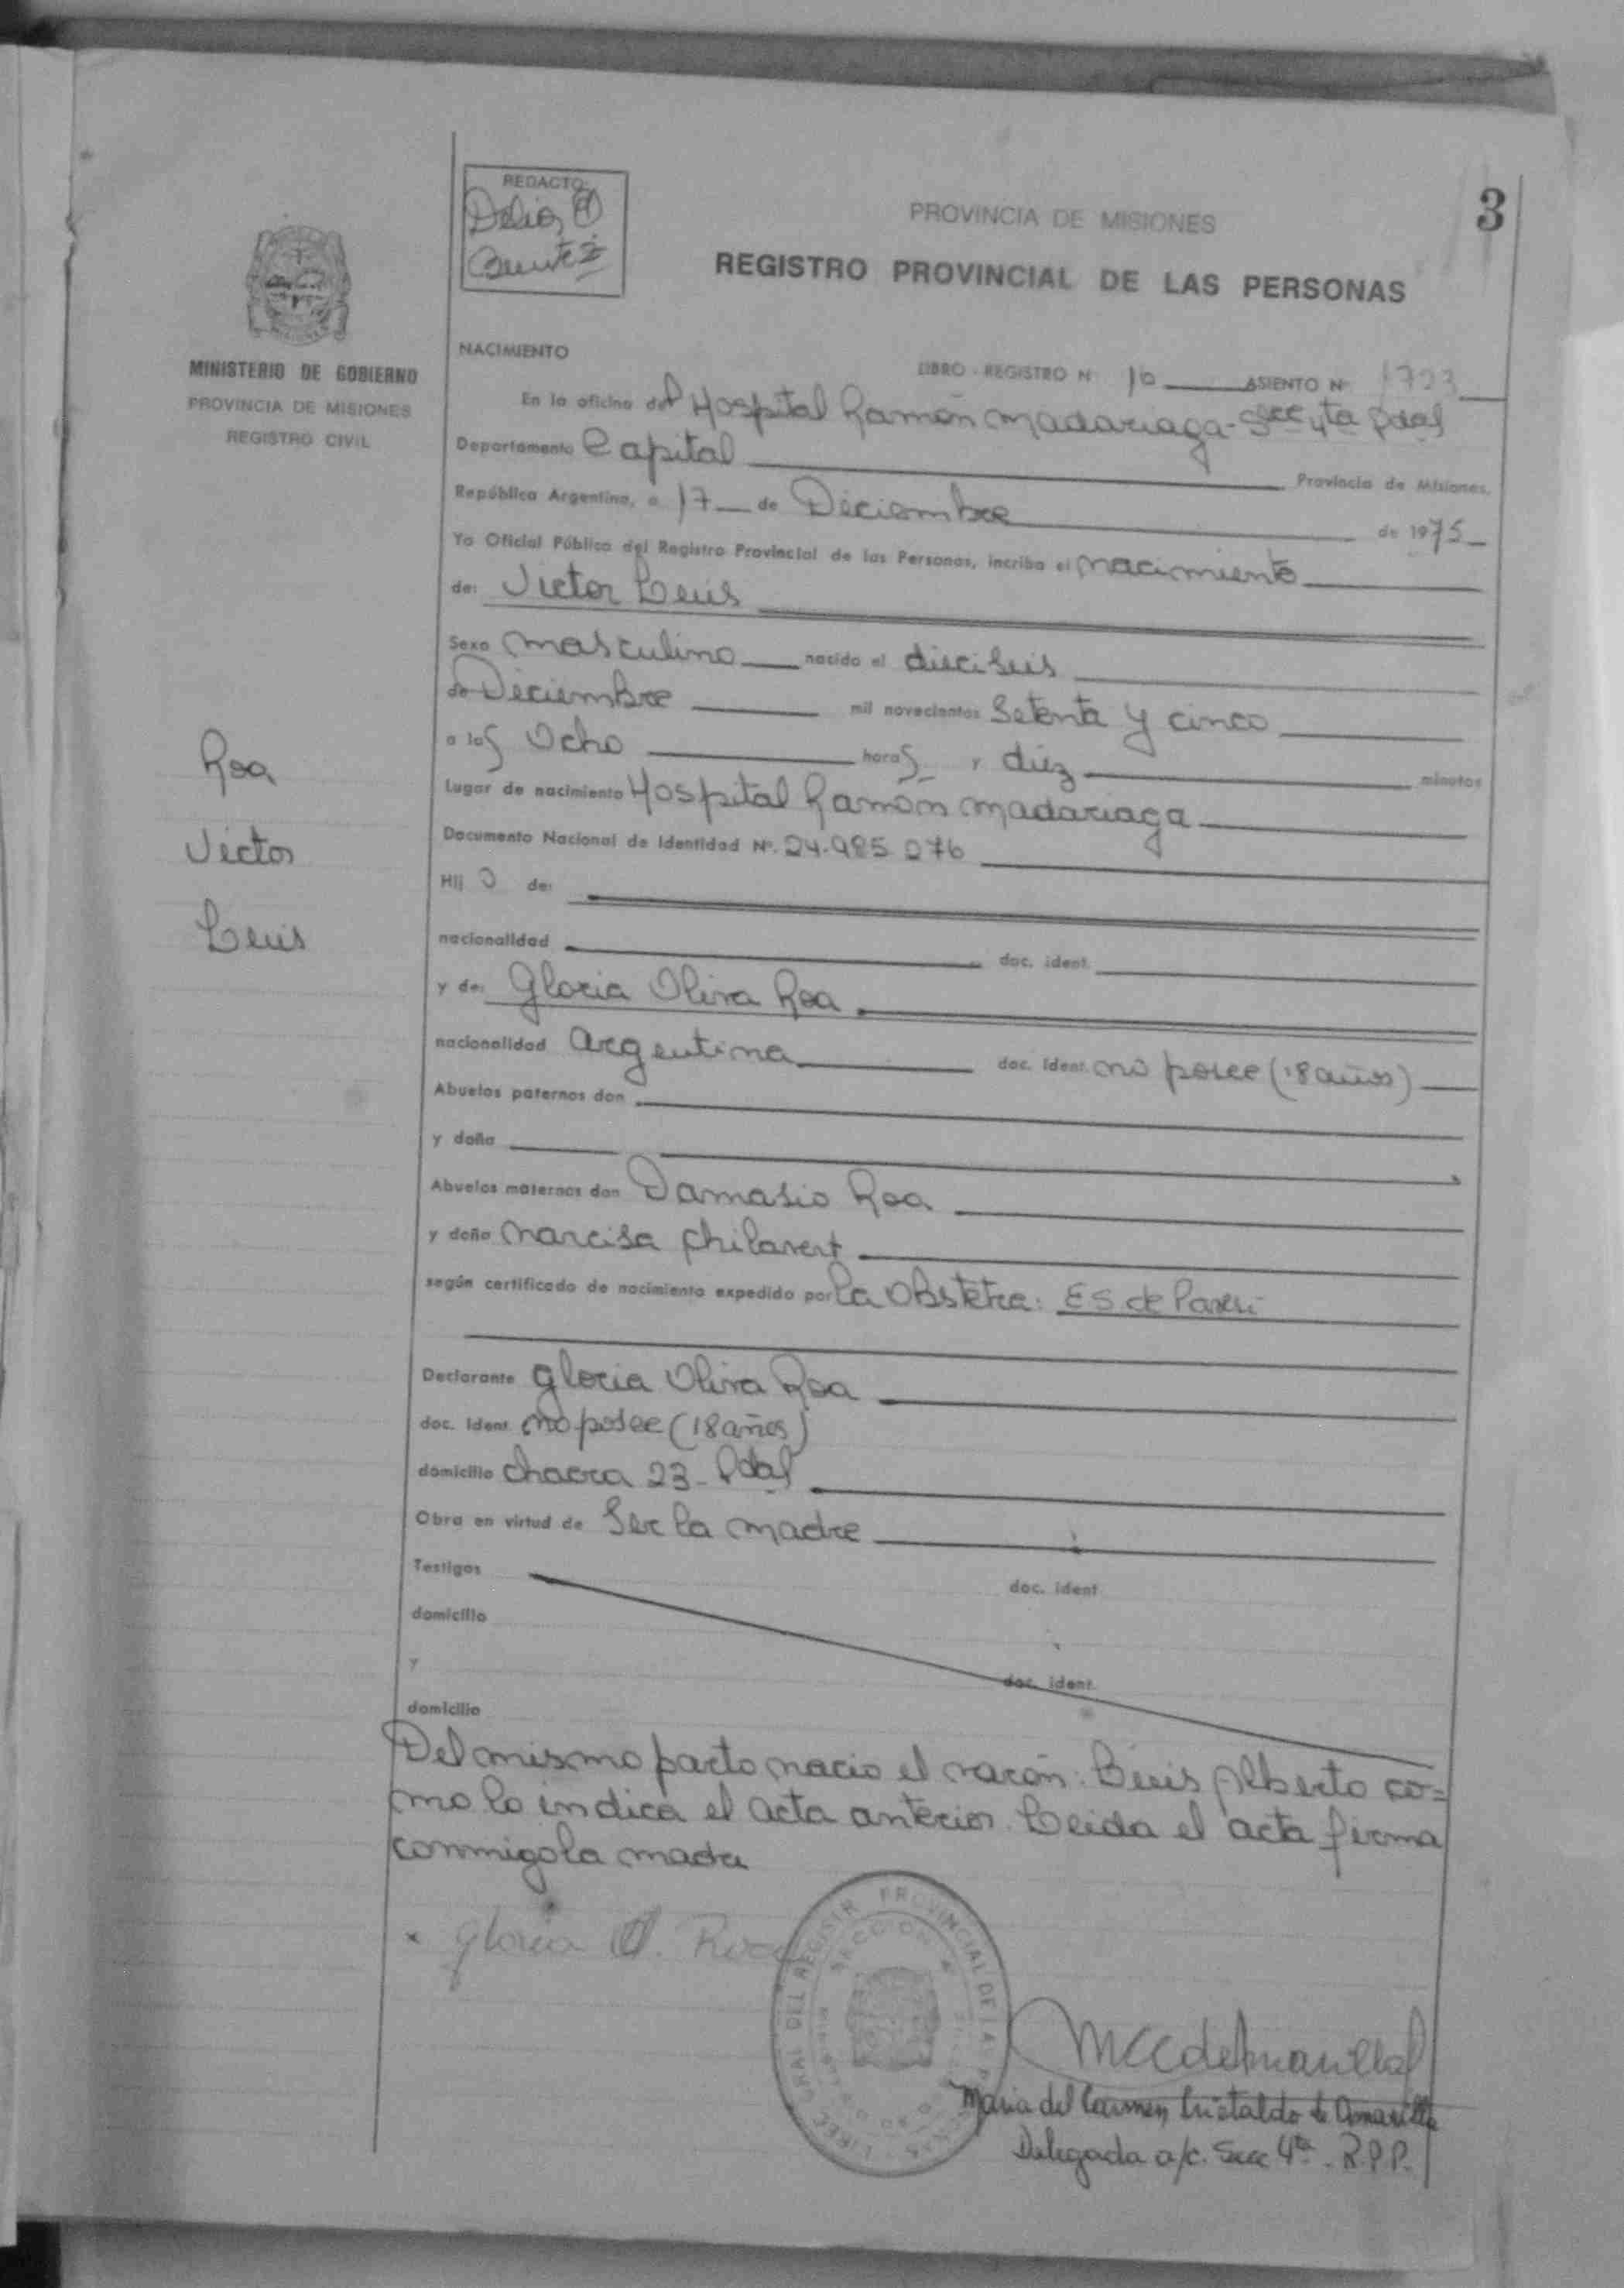 REDACTO:
Delia
Benitez
3
PROVINCIA DE MISIONES
REGISTRO PROVINCIAL DE LAS PERSONAS
MINISTERIO DE GOBIERNO
PROVINCIA DE MISIONES
REGISTRO CIVIL
Roa
Victor
Luis
NACIMIENTO
LIBRO - REGISTRO N 10 ASIENTO Nº 1723
En la oficina del Hospital Ramón Madariaga - Secc 4ta Pdas
Departamento Capital Provincia de Misiones.
República Argentina, a 17 de Diciembre de 1975
Yo Oficial Público del Registro Provincial de las Personas, incribo el nacimiento
de: Victor Luis
Sexo masculino nacido el dieciseis
de Diciembre mil novecientos setenta y cinco
a las Ocho horas y diez minutos
Lugar de nacimiento Hospital Ramón Madariaga
Documento Nacional de Identidad Nº. 24.985.076
Hij o de:
nacionalidad doc. ident.
y de: Gloria Oliva Roa
nacionalidad argentina doc. ident. no posee (18 años)
Abuelos paternos don
y doña
Abuelos maternos don Damasio Roa
y doña Narcisa Chilavert
según certificado de nacimiento expedido por la Obstetra: E S de
Declarante Gloria Oliva Roa
doc. Ident. no posee (18 años)
domicilio chacra 23 - Pdas
Obra en virtud de Ser la madre
Testigos doc. ident
domicilio
y doc. ident.
domicilio
Del mismo parto nacio el varón: Luis Alberto co=
mo lo indica el acta anterior. Leida el acta firma
conmigo la madre
Gloria O. Roa
Maria del Carmen Cristaldo de Amarilla
Delegada a/c. Secc 4ta. R.P.P.